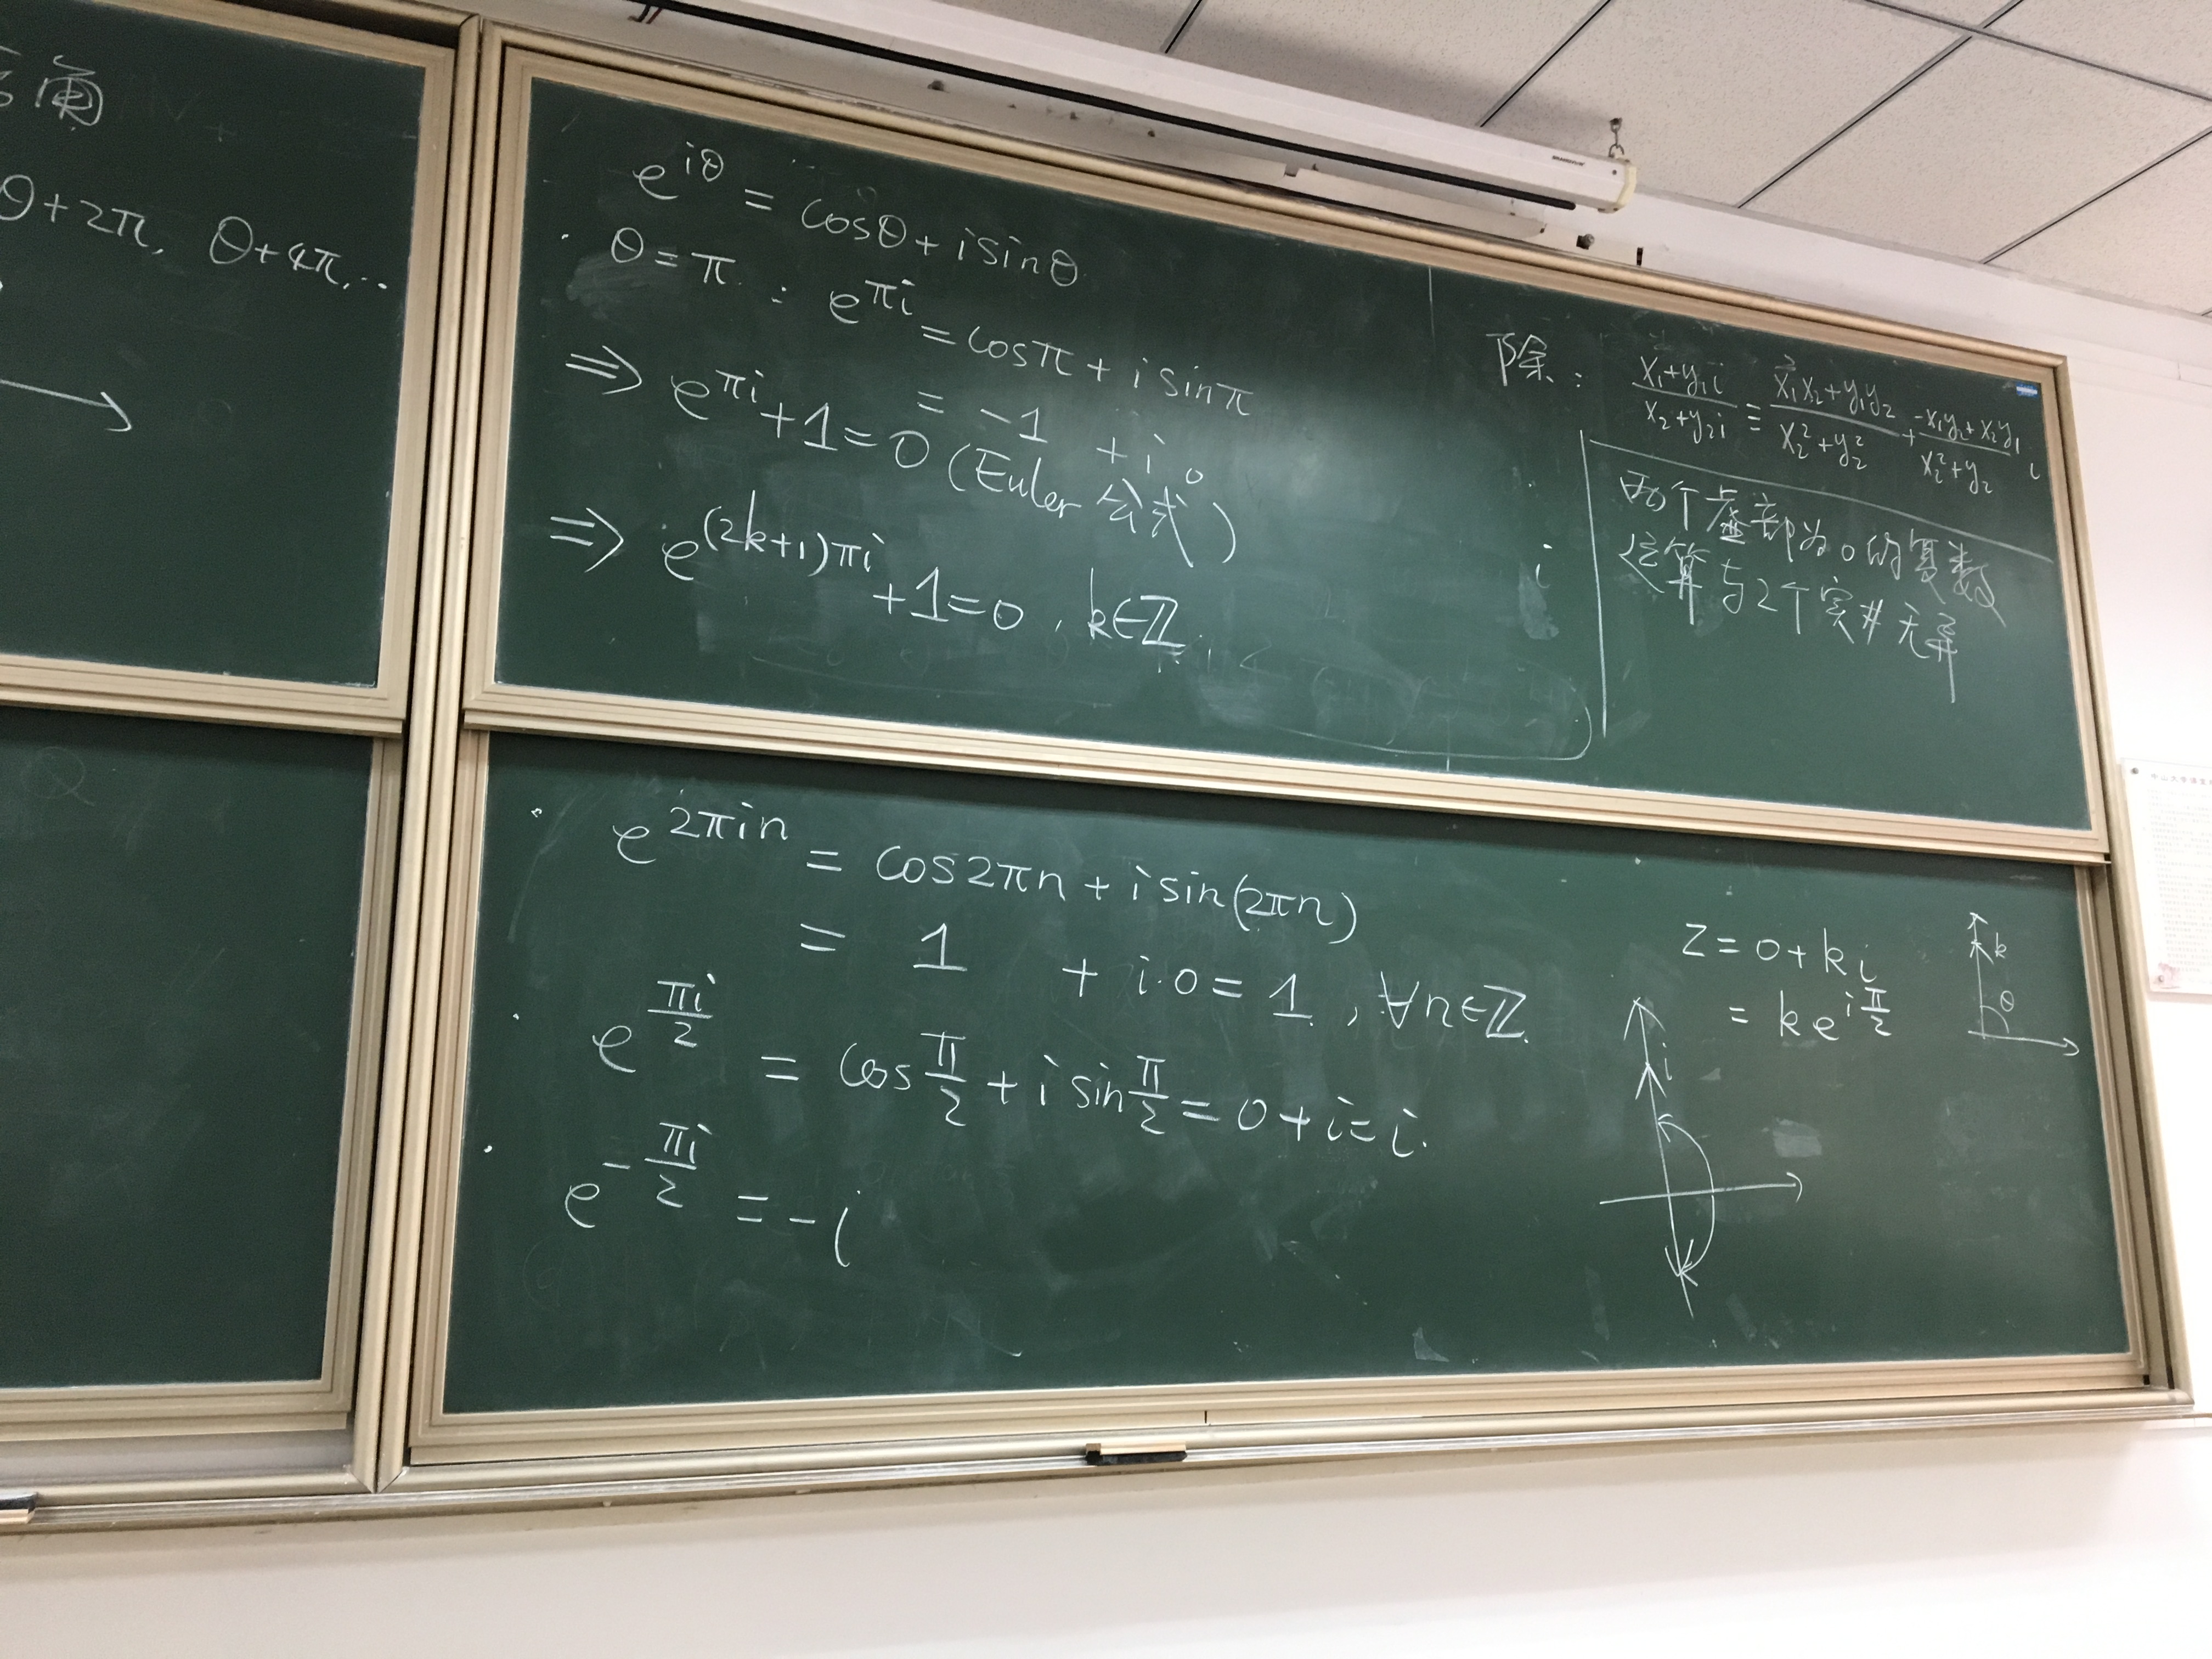 角
θ+2π, θ+4π,...
e^{iθ} = cosθ+isinθ
· θ=π : e^{πi} = cosπ + i sinπ
= -1 + i 0
⇒ e^{πi}+1=0 (Euler 公式)
⇒ e^{(2k+1)πi}+1=0, k∈ℤ
i
除: \frac{x₁+y₁i}{x₂+y₂i} ≡ \frac{x₁x₂+y₁y₂}{x₂²+y₂²} + \frac{-x₁y₂+x₂y₁}{x₂²+y₂} i
两个虚部为0的复数
运算与2个实#无异
· e^{2πin} = cos2πn + isin(2πn)
= 1 + i·0 = 1, ∀n∈ℤ.
· e^{\frac{πi}{2}} = cos\frac{π}{2} + i sin\frac{π}{2} = 0+i=i.
· e^{-\frac{πi}{2}} = -i
Z=0+ki
= ke^{i\frac{π}{2}}
k
θ
i